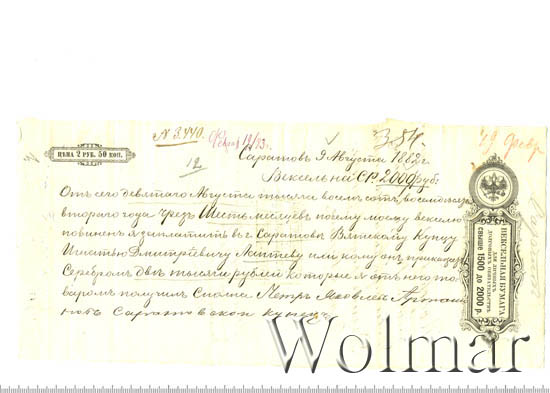 N 3.440.
Февр 12/83 г.
12
49 Февр
ЦѢНА 2 РУБ. 50 КОП.
Саратовъ 9 Августа 1882 г.
Вексель на С.Р. 2000 руб.
Отъ сего девятаго Августа тысяча восемьсотъ восемьдесятъ
втораго года чрезъ Шесть мѣсяцевъ по сему моему векселю
повиненъ я заплатить въ г. Саратовѣ Вятскому Купцу
Игнатью Дмитріевичу или кому онъ прикажетъ
Серебромъ двѣ тысячи рублей которые я отъ него то-
варомъ получилъ Сполна Петръ Яковлевъ
Саратовской купецъ
ВЕКСЕЛЬНАЯ БУМАГА
ДЛЯ ЛИЧНЫХЪ
ДОЛГОВЫХЪ ОБЯЗАТЕЛЬСТВЪ
СВЫШЕ 1500 ДО 2000 Р.
Wolmar